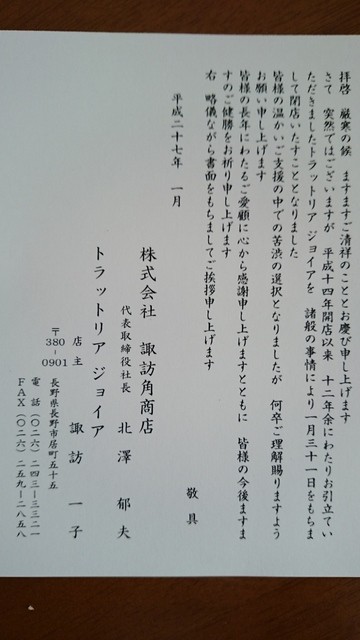 拝啓　厳寒の候　ますますご清祥のこととお慶び申し上げます
さて　突然ではございますが　平成十四年開店以来　十二年余にわたりお引立てい
ただきましたトラットリア ジョイアを　諸般の事情により一月三十一日をもちま
して閉店いたすこととなりました
皆様の温かいご支援の中での苦渋の選択となりましたが　何卒ご理解賜りますよう
お願い申し上げます
皆様の長年にわたるご愛顧に心から感謝申し上げますとともに　皆様の今後ますま
すのご健勝をお祈り申し上げます
右　略儀ながら書面をもちましてご挨拶申し上げます
敬具
平成二十七年　一月
株式会社　諏訪角商店
代表取締役社長　北澤　郁夫
トラットリア ジョイア
店主　諏訪　一子
〒380-0901
長野県長野市居町五十五
電話（〇二六）二四三－三三二一
FAX（〇二六）二五九－二八五八